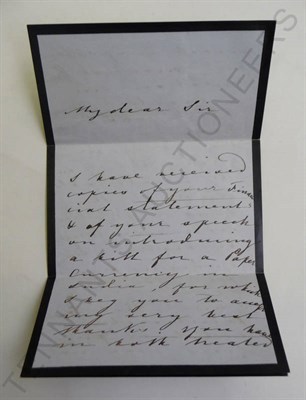 My dear Sir
I have received
copies of your Finan
cial statement
& of your speech
on introducing
a bill for a Paper
Currency in
India, for which
I beg you to accept
my very best
thanks. You have
in both treated
TENNANTS AUCTIONEERS